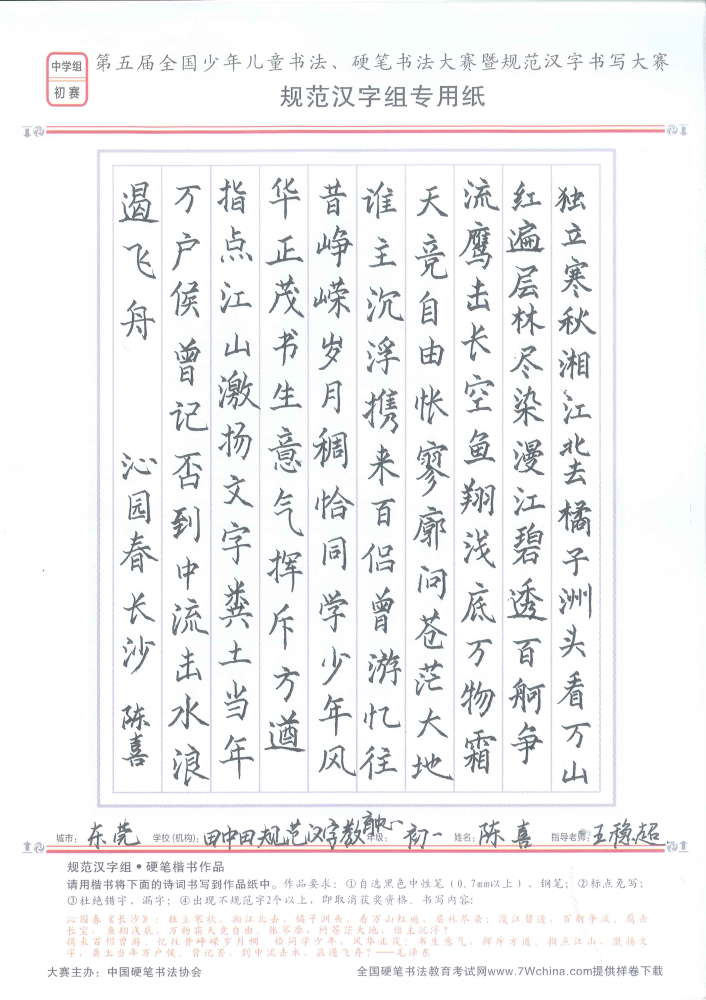 中学组
初赛
第五届全国少年儿童书法、硬笔书法大赛暨规范汉字书写大赛
规范汉字组专用纸
独立寒秋湘江北去橘子洲头看万山
红遍层林尽染漫江碧透百舸争
流鹰击长空鱼翔浅底万物霜
天竞自由怅寥廓问苍茫大地
谁主沉浮携来百侣曾游忆往
昔峥嵘岁月稠恰同学少年风
华正茂书生意气挥斥方遒
指点江山激扬文字粪土当年
万户侯曾记否到中流击水浪
遏飞舟 沁园春长沙 陈喜
城市：东莞 学校(机构)：田中田规范汉字教育中心 年级：初一 姓名：陈喜 指导老师：王稳超
规范汉字组•硬笔楷书作品
请用楷书将下面的诗词书写到作品纸中。作品要求：①自选黑色中性笔（0.7mm以上）、钢笔；②标点免写；
③杜绝错字，漏字；④出现不规范字2个以上，即取消获奖资格。书写内容：
沁园春《长沙》：独立寒秋，湘江北去，橘子洲头。看万山红遍，层林尽染；漫江碧透，百舸争流。鹰击
长空，鱼翔浅底，万物霜天竞自由。怅寥廓，问苍茫大地，谁主沉浮？
携来百侣曾游。忆往昔峥嵘岁月稠。恰同学少年，风华正茂；书生意气，挥斥方遒。指点江山，激扬文
字，粪土当年万户侯。曾记否，到中流击水，浪遏飞舟？——毛泽东
大赛主办：中国硬笔书法协会 全国硬笔书法教育考试网www.7Wchina.com提供样卷下载